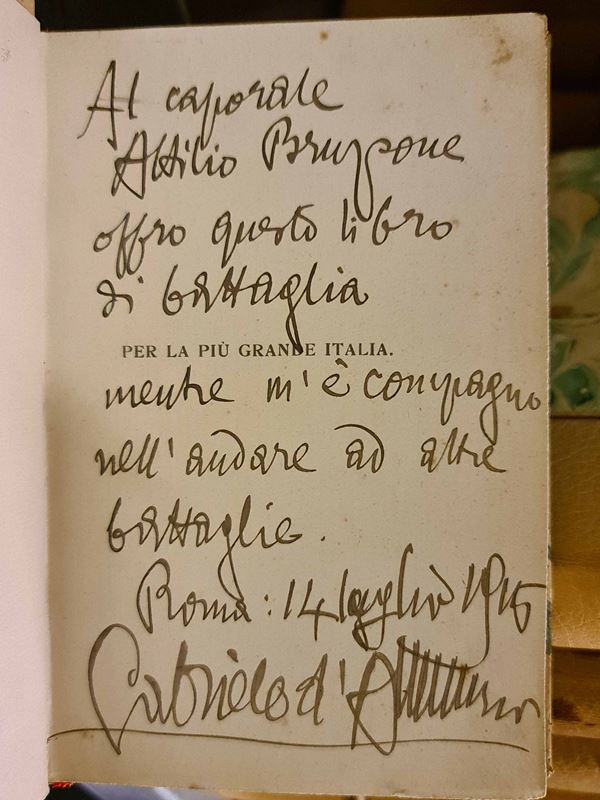 Al caporale
Attilio Bruzzone
offro questo libro
di battaglia
PER LA PIÙ GRANDE ITALIA.
mentre m'è compagno
nell'andare ad altre
battaglie.
Roma: 14 luglio 1915
Gabriele d'Annunzio